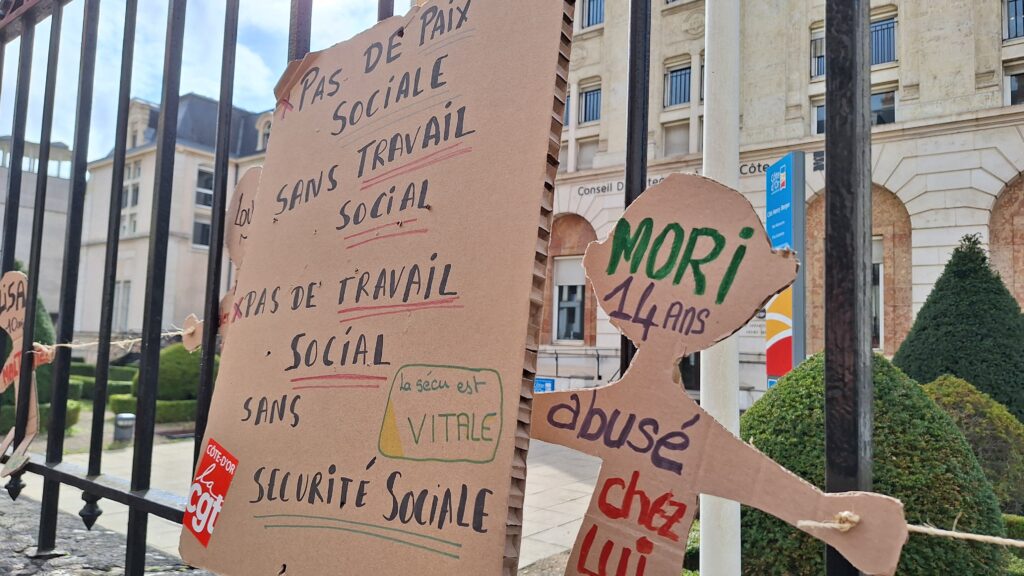 PAS DE PAIX
SOCIALE
SANS TRAVAIL
SOCIAL
PAS DE TRAVAIL
SOCIAL
SANS
SECURITÉ SOCIALE
la sécu est
VITALE
CÔTE-D'OR
la
cgt
MORI
14 ANS
abusé
chez
LUI
LISA
10 ans
Lou
Conseil D
Côte